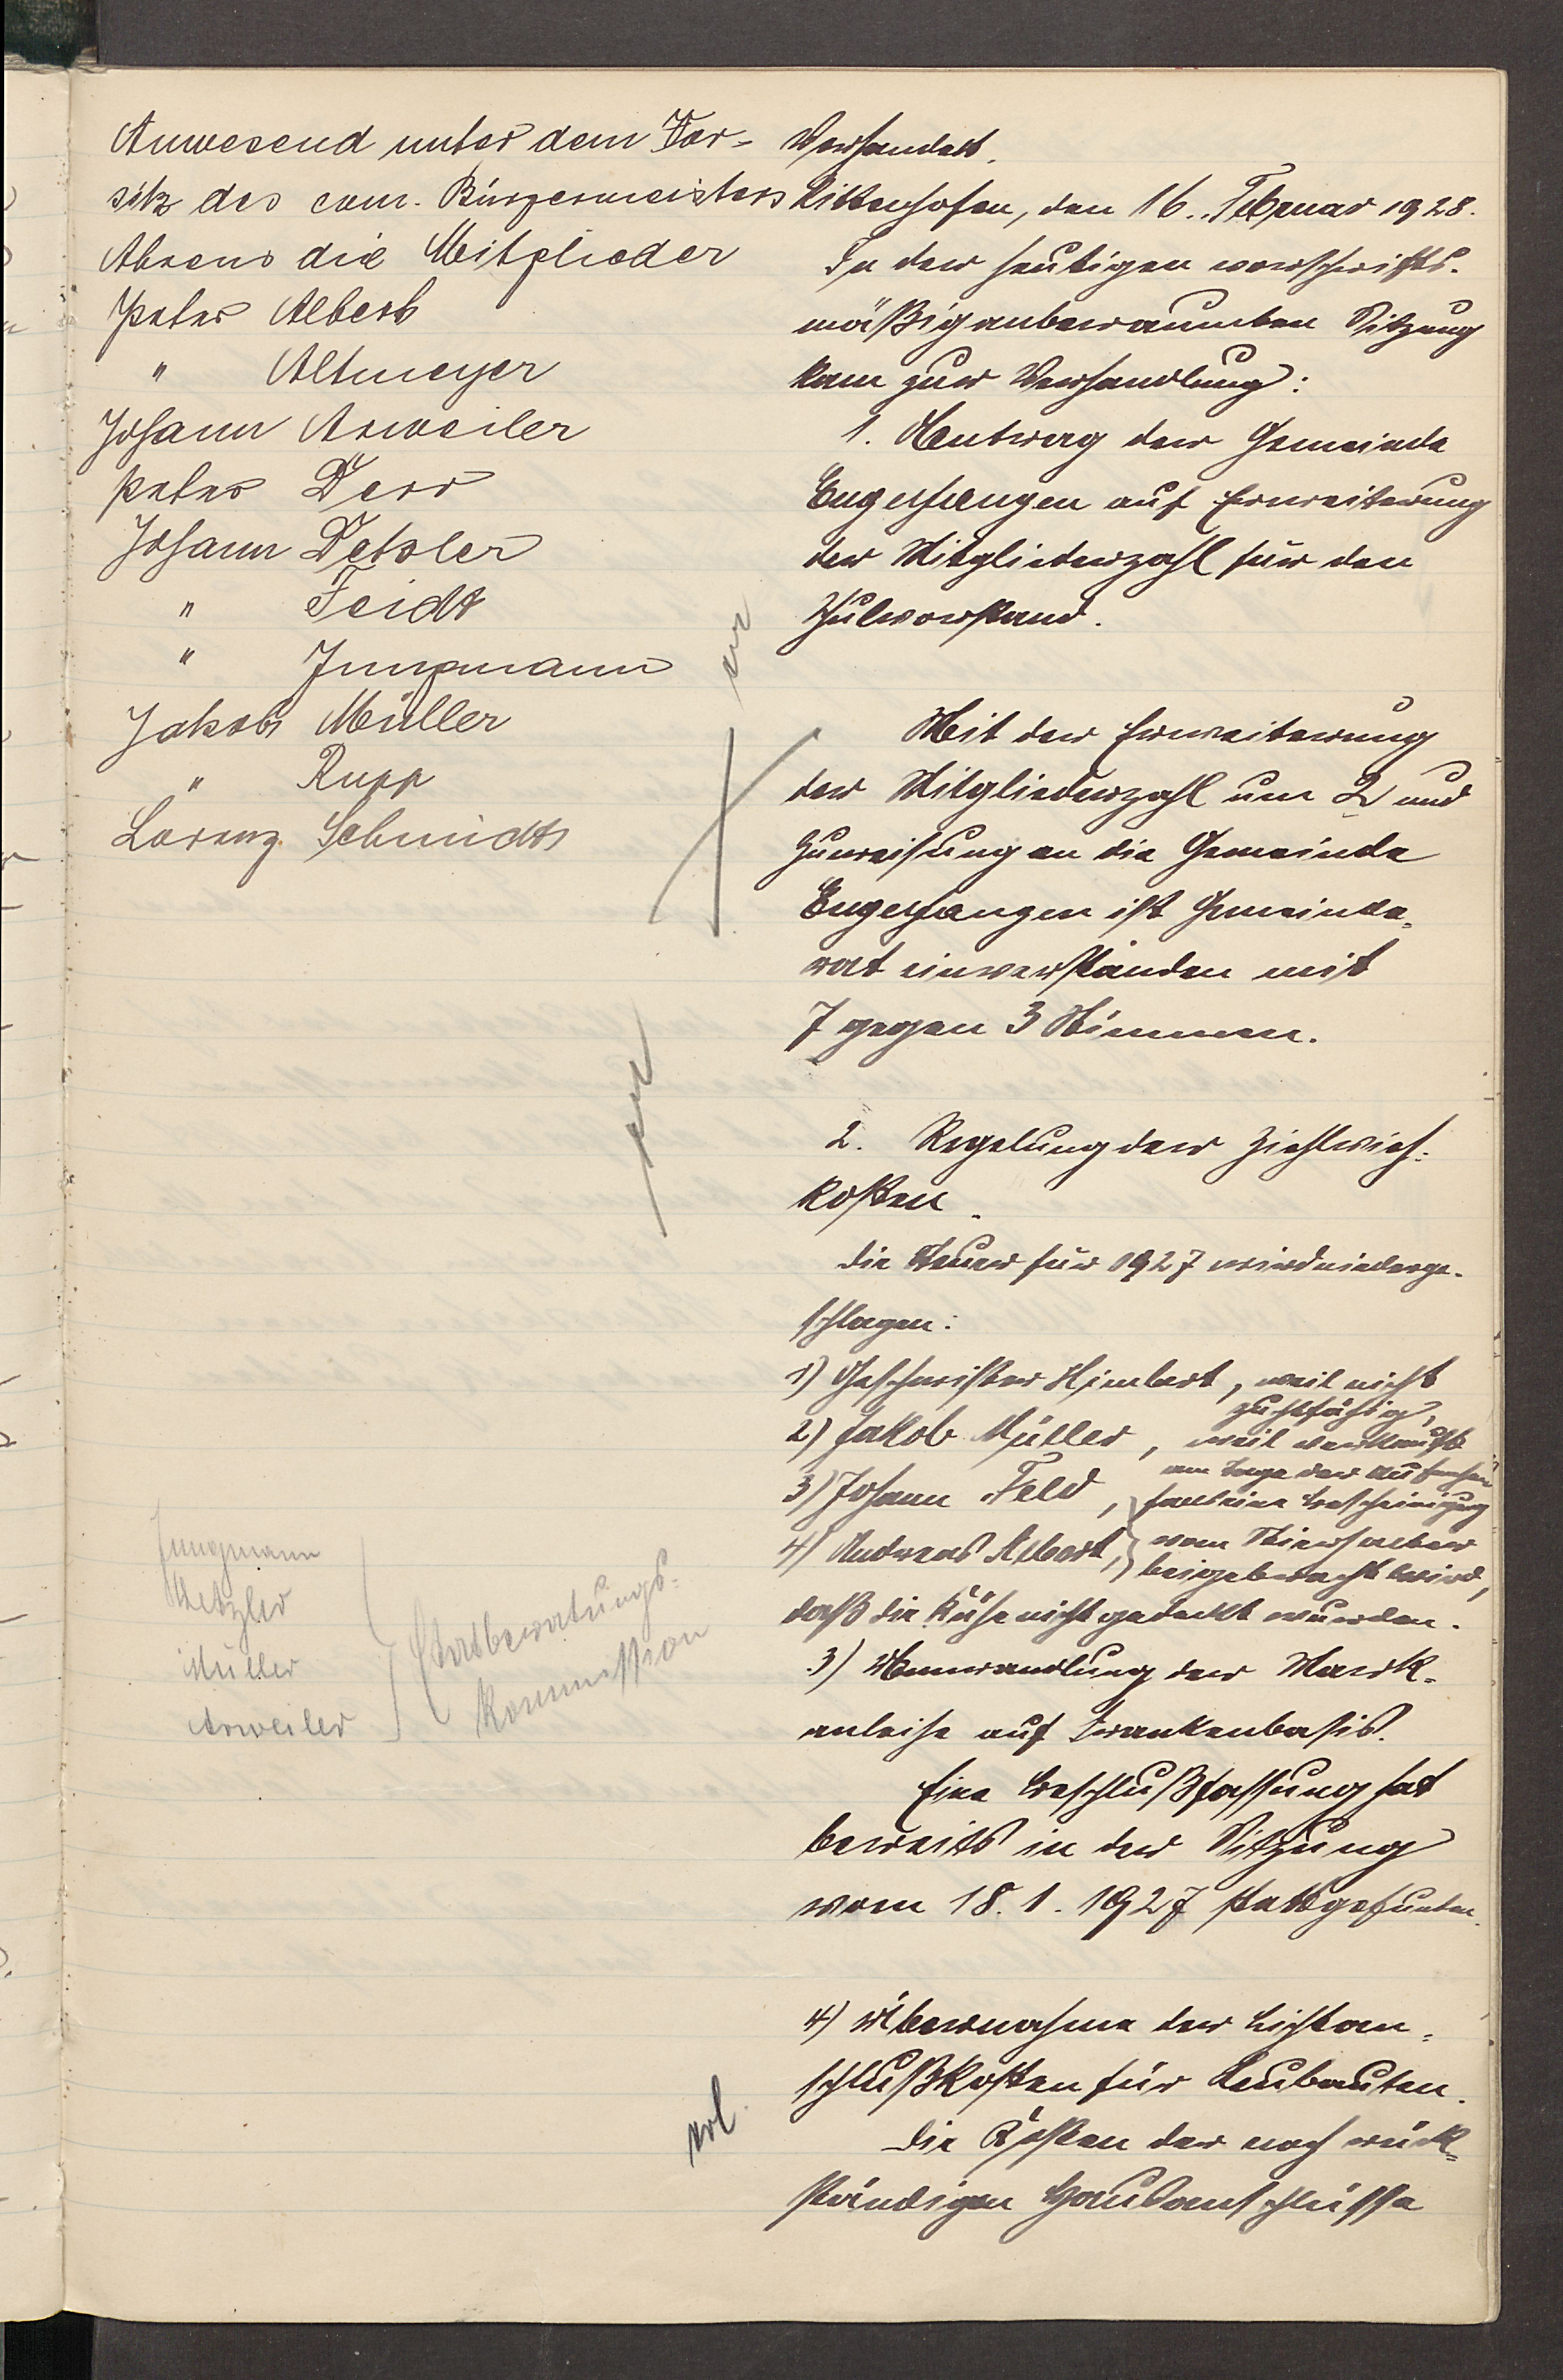 Anwesend unter dem Vor-
sitz des com. Bürgermeisters
Ahrens die Mitglieder
Peter Albert
" Altmeyer
Johann Arweiler
Peter Derr
Johann Detzler
" Feidt
" Jungmann
Jakob Müller
" Rupp
Lorenz Schmidt
Jungmann
Detzler
Müller
Arweiler
Etatberatungs-
kommission
Verhandelt.
Hüttenhofen, den 16. Februar 1928.
In der heutigen vorschrifts-
mäßig anberaumten Sitzung
kam zur Verhandlung:
1. Antrag der Gemeinde
Engelfangen auf Erweiterung
der Mitgliederzahl für den
Schulvorstand.
Mit der Erweiterung
der Mitgliederzahl um 2 und
Zuweisung an die Gemeinde
Engelfangen ist Gemeinde-
rat einverstanden mit
7 gegen 3 Stimmen.
2. Regelung der Ziehlvieh-
kosten.
Die Steuer für 1927 wird niederge-
schlagen:
1) Geschwister Himbert, weil nicht
zuchtfähig,
2) Jakob Müller, weil verkauft
am Tage der
3) Johann Feld, falls eine Bescheinigung
4) Andreas Albert, vom Stierhalter
beigebracht wird,
daß die Kühe nicht gedeckt wurden.
3) Umwandlung der Mark-
anleihe auf Frankenbasis.
Eine Beschlußfassung hat
bereits in der Sitzung
vom 18. 1. 1927 stattgefunden.
4) Übernahme der Lichtan-
schlußkosten für Neubauten.
Die Kosten der noch rück-
ständigen Hausanschlüsse